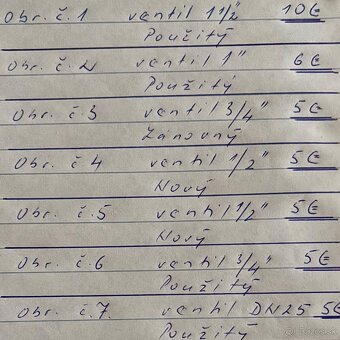 Obr. č. 1 ventil 1 1/2" 10€
Použitý
Obr. č. 2 ventil 1" 6€
Použitý
Obr. č. 3 ventil 3/4" 5€
Zánovný
Obr. č. 4 ventil 1/2" 5€
Nový
Obr. č. 5 ventil 1/2" 5€
Nový
Obr. č. 6 ventil 3/4" 5€
Použitý
Obr. č. 7. ventil DN25 5€
Použitý